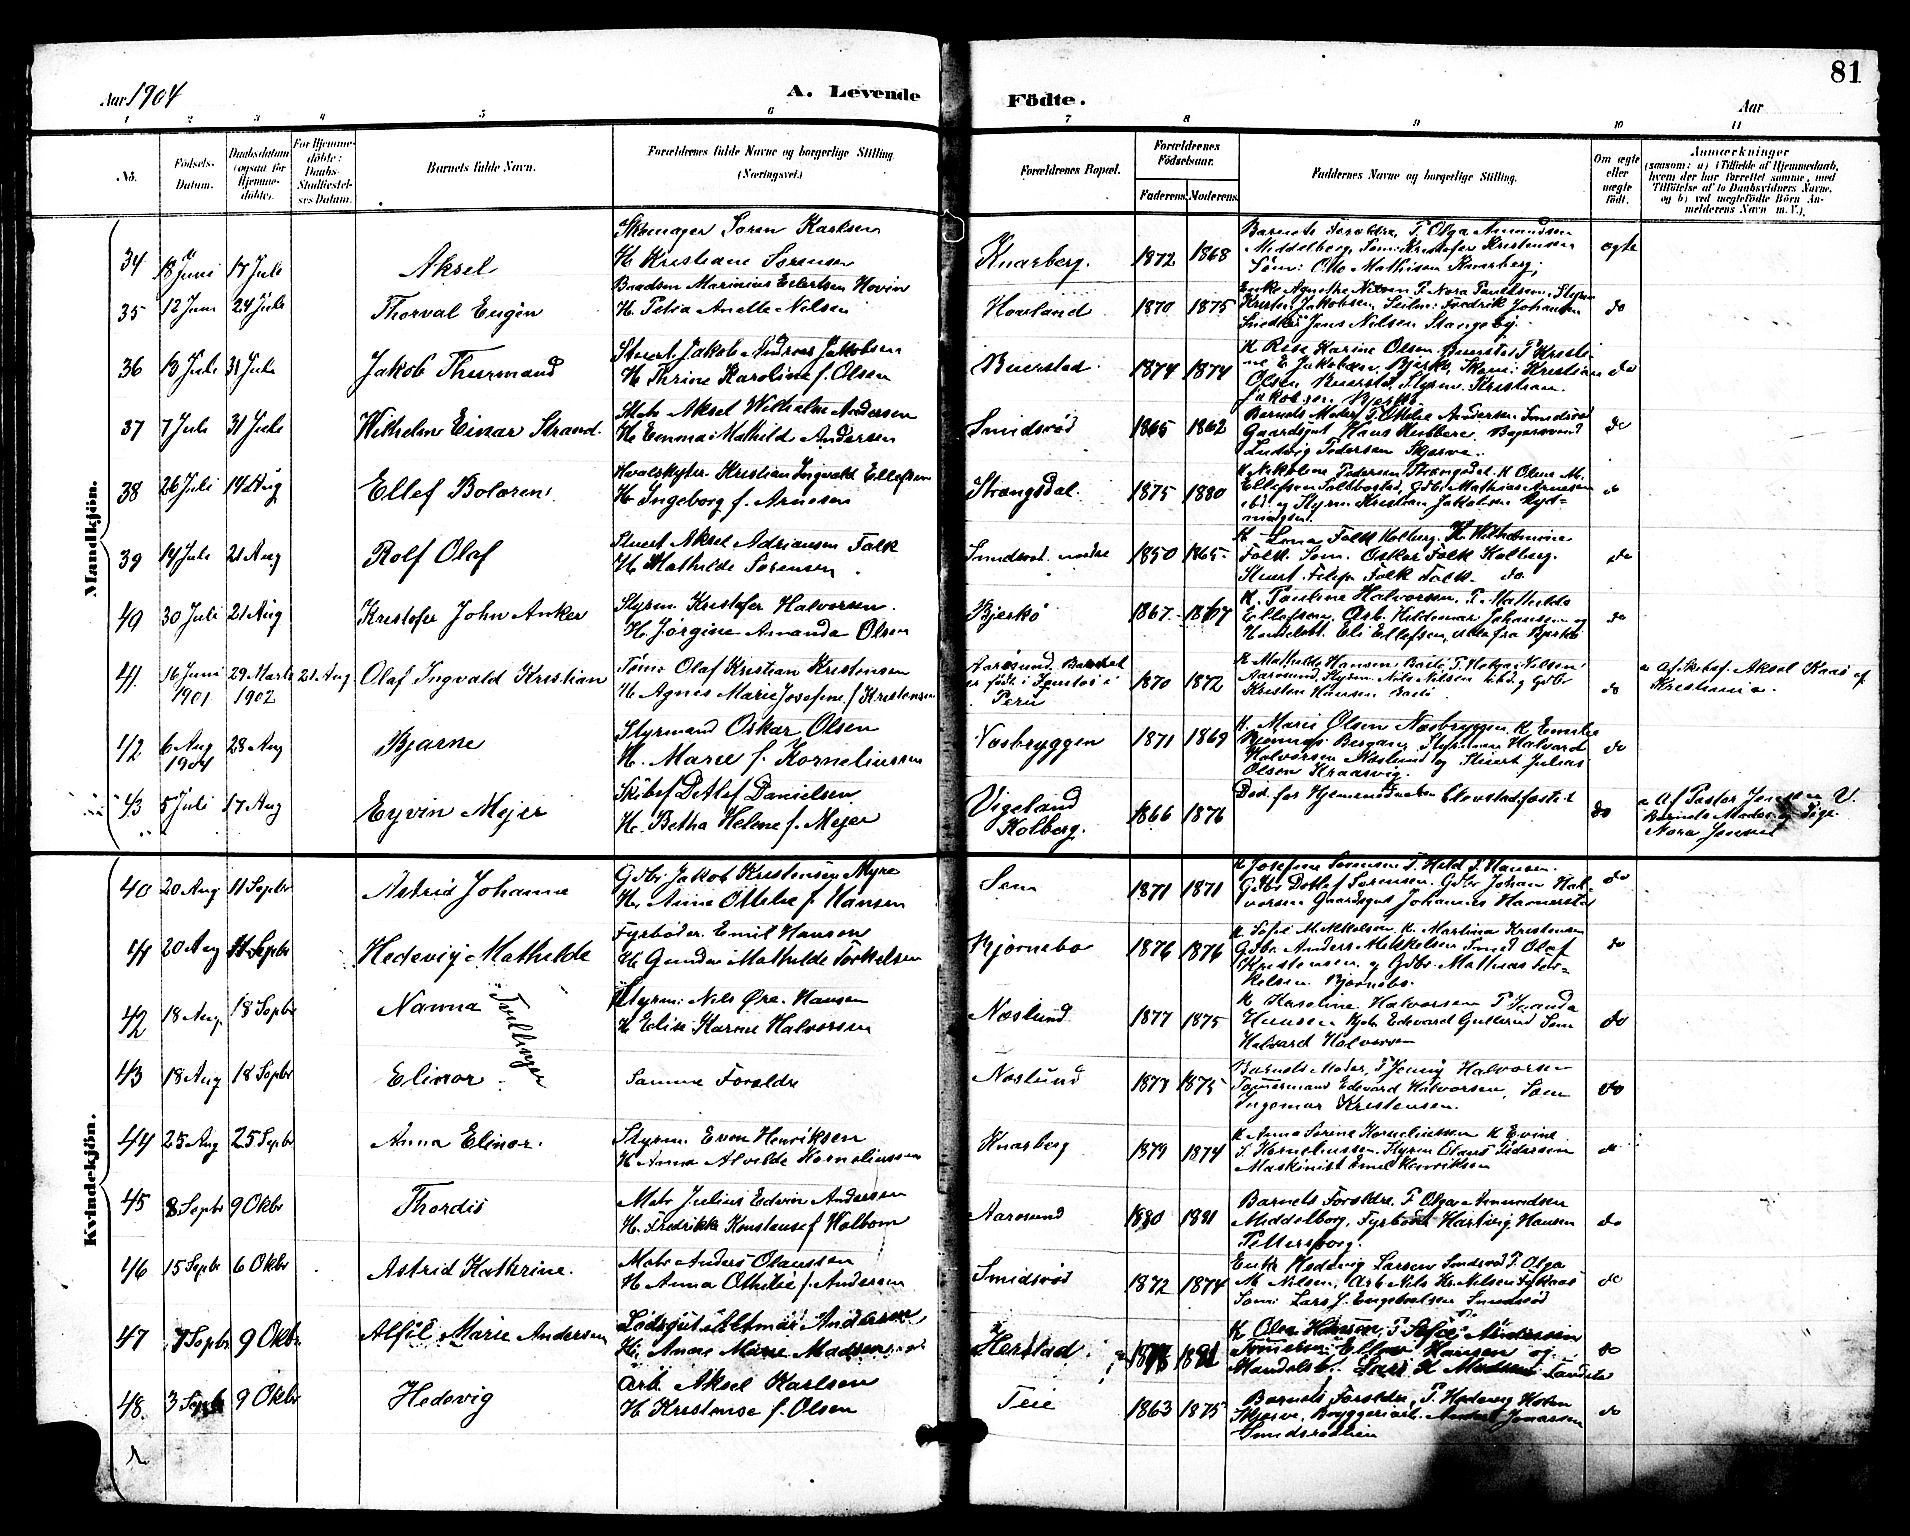 81
Aar 1904
A. Levende
Födte.
Aar
1 2 3 4 5 6 7 8 9 10 11
No.
Födsels-Datum.
Daabsdatum (ogsaa for Hjemmedöbte).
For Hjemmedöbte: Daabs-Stadfæstelses Datum.
Barnets fulde Navn.
Forældrenes fulde Navne og borgerlige Stilling (Næringsvei).
Forældrenes Bopæl.
Forældrenes Födselsaar.
Faderens. Moderens.
Faddernes Navne og borgerlige Stilling.
Om ægte eller uægte födt.
Anmærkninger
(saasom: a) i Tilfælde af Hjemmedaab, hvem der har forrettet samme, med Tilföielse af to Daabsvidners Navne, og b) ved uægtefödte Börn Anmelderens Navn m. V.).
Mandkjön.
34 18 Juni 17 Juli Aksel
Skomager Søren Karlsen
H. Kristiane Sørensen
Knarberg. 1872 1868
Barnets Foreldre, P. Olga Amundsen
Middelberg, Søm: Kristofer Kristensen
Søm: Otto Mathisen Knarberg,
ægte
35 12 Juni 24 Juli Thorval Eugin
Baadsm Marinius Eilertsen Hovin
H. Petra Anette Nilsen
Hovland 1870 1875
Enke Agnethe Nilsen P. Nora Paulsen. Styrm
Kristen Jakobsen, Seilm: Fredrik Johansen
Snedker Jens Nilsen Stangeby.
do
36 13 Juli 31 Juli Jakob Thurmand
Stuert Jakob Andreas Jakobsen
H. Thrine Karoline f. Olsen
Buerstad. 1874 1874
K Risa Karine Olsen Buerstad P Kristi-
ne E Jakobsen, Bjerkø, Skom: Kristian
Olsen Buerstad, Styrm. Kristian
Jakobsen Bjerkø
do
37 7 Juli 31 Juli Wilhelm Einar Strand.
Matr Aksel Wilhelm Andersen
H. Emma Mathild Andersen
Smidsrød 1865 1862
Barnets Moder, P. Othilie Andersen Smidsrød
Gaardsgut Hans
Ludvig Pedersen Skjærve.
do
38 26 Juli 14 Aug Ellef Bolæren
Hvalskyter Kristian Ingvald Ellefsen
H. Ingeborg f. Arnesen
Strængsdal. 1875 1880
K Nikoline Pedersen Strængsdal. K Oline M.
Ellefsen Saltbostad, Gdbr Mathias Arnesen
ibd. og Styrm Kristian Jakobsen
do
39 14 Juli 21 Aug Rolf Olaf
Stuert Aksel Adriansen Falk
H. Mathilde Sørensen
Smidsrød nordre 1850 1865
K Lona Falk Kolberg. K. Wilhelmine
Falk Søm. Oskar Falk Kolberg.
Stuert. Filip Falk Falk. do
do
40 30 Juli 21 Aug Kristofer John Anker
Styrm Kristofer Halvorsen.
H. Jørgine Amanda Olsen
Bjerkø 1867 1867
K. Pauline Halvorsen. P. Mathilde
Ellefsen. Arb. Hildemar Johansen og
Handelsbt. Eli Ellefsen, alle fra Bjerkø
do
41. 16 Juni 1901 29 Marts 1902 21 Aug Olaf Ingvald Kristian
Tøm: Olaf Kristian Kristensen
H. Agnes Marie Josefine f Kristensen
Aarøsund. Barnet
er født i
Peru
1870 1872
K Mathilde Hansen Basle. P. Helga Nilsen
Aarøsund. Styrm Nils Nilsen ibd og Gdbr
Kristen Hansen Basle
do
a Af Skibsf. Aksel Kaas af
Kristiania.
42 6 Aug 1904 28 Aug Bjarne
Styrmand Oskar Olsen
H. Marie f. Korneliussen
Næsbryggen 1871 1869
K. Marie Olsen Næsbryggen K Emilie
Styrmann Halvard
Halvorsen Næslund og Stuert Julius
Olsen Kraasvig.
do
43 5 Juli 17 Aug Eyvin Mejer
Skibsf Detlef Danielsen
H. Betha Helene f. Mejer
Vigeland
Kolberg.
1866 1876
Død før Hjemmedaaben Stadfæstet
do
a. Af Pastor Jensen V.
Barnets Moder og Pige.
Nora Jensen
Kvindekjön.
40 20 Aug 11 Sepbr Astrid Johanna
Gdbr Jakob Kristensen Myre
H. Anne Othelie f. Hansen
Sem 1871 1871
K Josefine Sørensen P. Hild J. Hansen.
Gdbr Detlef Sørensen. Gdbr Johan Hal-
vorsen Gaardsgut Johannes Havnerstad
do
41 20 Aug 11 Sepbr Hedevig Mathilde
Fyrbøder. Emil Hansen
H. Gunda Mathilde Torkelsen
Bjørnebo 1876 1876
K Sofie Mikkelsen K Martina Kristensen
Gdbr Anders Mikkelsen Smed Olaf
Kristensen og Gdbr Mathias Tor-
kelsen Bjørnebo.
do
42 18 Aug. 18 Sepbr Nanna
Tvillinger
Styrm: Nils Øre. Hansen
H. Elise Karine Halvorsen
Næslund 1877 1875
K Karoline Halvorsen P Handa
Hansen Kjøbr Edevard Gullerud Søm
Halvard Halvorsen
do
43 18 Aug 18 Sepbr Elinor
Samme Foreldre
Næslund 1877 1875
Barnets Moder, P Jenny Halvorsen
Tømmermand Edevard Halvorsen, Søm
Ingomar Kristensen.
do
44 25 Aug 25 Sepbr Anna Elinor.
Styrm Even Henriksen
H Anna Alvilde Korneliussen
Knarberg 1879 1874
K Anna Sørine Korneliussen K Evine
S. Korneliussen Styrm Olaus Pedersen
Maskinist Emil Henriksen
do
45 8 Sepbr 9 Oktbr Thordis
Matr Julius Edvin Andersen
H. Fredrikke Konstanse f Holbom
Aarøsund 1880 1881
Barnets Foreldre, P Olga Amundsen
Middelborg, Fyrbøder Hartvig Hansen
Pettersborg.
do
46 15 Sepbr 6 Okbr Astrid Kathrine.
Matr Anders Olaussen
H. Anna Othilie f. Andersen
Smidsrød 1872 1874
Enke Hedevig Larsen Smidsrød P. Olga
M Nilsen, Arb Nils Kr. Nilsen
Søm: Lars J. Engebretsen Smidsrød
do
47 7 Sepbr 9 Okbr. Alfil Marie Andersen
Lodsgut Altmar Andersen
H. Anne Marie Madsen
Herstad. 1878 1881
K Olea Hansen, P Sofie Andersen
Tømmerm: Ellev Hansen og
Handelsb. Lars K Madsen Sandø
do
48. 3 Sepbr 9 Okbr Hedevig
Arb. Aksel Karlsen
H Kristense f. Olsen
Teie 1863 1875
Barnets Foreldre, P. Hedevig Holm
Skjærve, Bryggeriarb. Anders Jonassen
Smidsrødveien
do